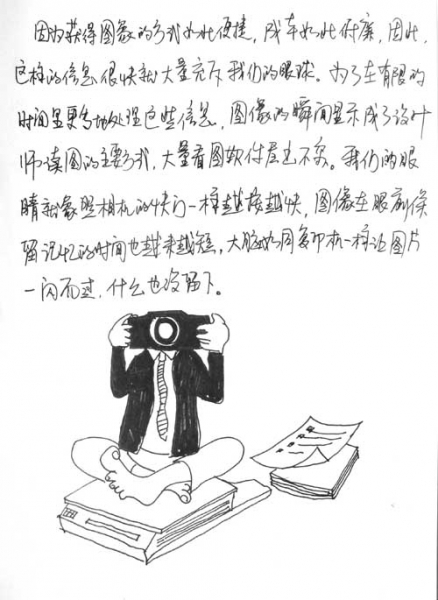 因为获得图象的方式如此便捷，成本如此低廉，因此，
这样的信息很快就大量充斥我们的眼球。为了在有限的
时间里更多地处理这些信息，图像的瞬间显示成了设计
师读图的主要方式，大量看图软件层出不穷。我们的眼
睛就象照相机的快门一样越按越快，图像在眼前停
留记忆的时间也越来越短，大脑如同复印机一样让图片
一闪而过，什么也没留下。